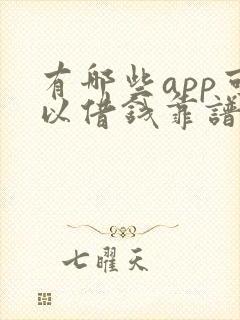 有哪些app可
以借钱靠谱
七曜天